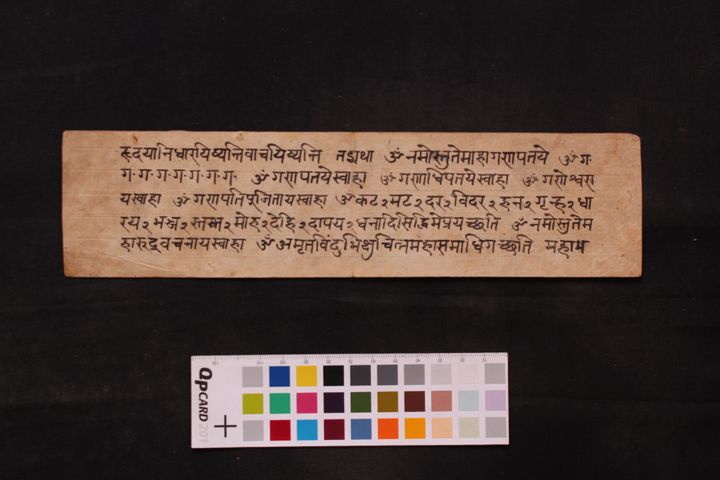 हृदयानिधारयिष्यन्तिवाचयिष्यन्ति तद्यथा ॐ नमोस्तुतेमाहागणपतये ॐ ग·
ग·ग·ग·ग·ग·ग·ग· ॐ गणपतयेस्वाहा ॐ गणाधिपतयेस्वाहा ॐ गणेश्वरा
यस्वाहा ॐ गणपतिपूजितायस्वाहा ॐ कट२मट२दर२विदर२हन२गृह्न२धा
रय२भञ्ज२स्तम्भ२मोह२देहि२दापय२धनादिसिद्धिमेप्रयच्छति ॐ नमोस्तुतेम
हारुद्रवचनायस्वाहा ॐ अमृतविंदु चित्तमहासमाधिगच्छति महाभ
QPCARD 201